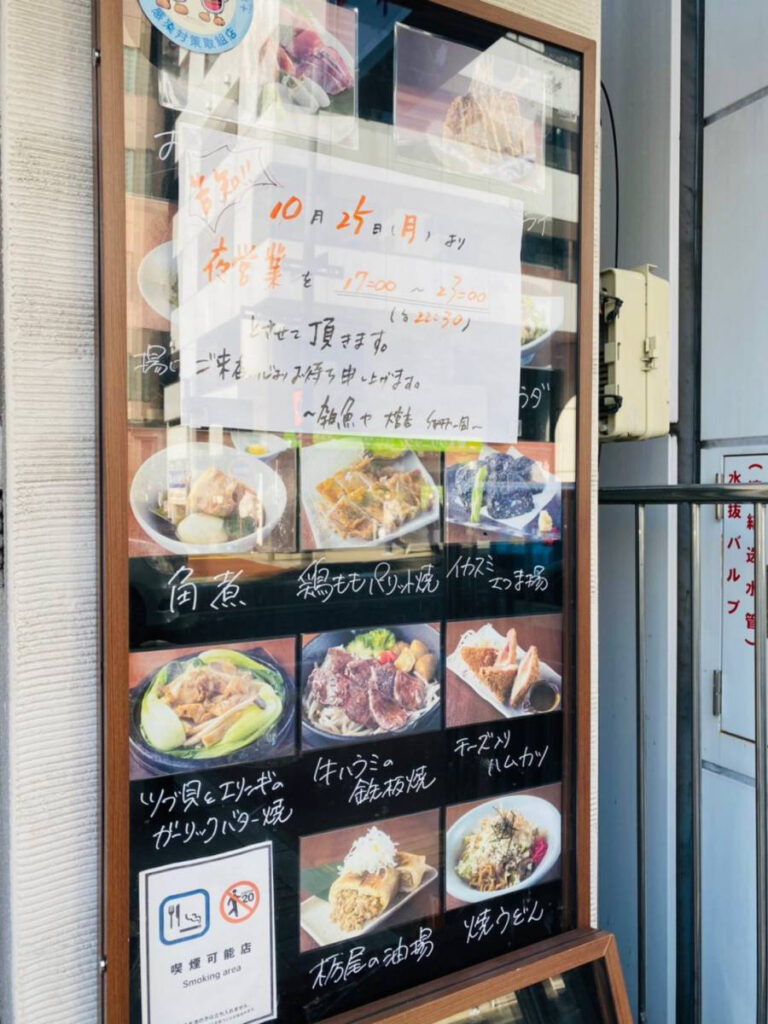 感染対策取組店
告知!!
10月25日(月)より
夜営業を 17:00 ~ 23:00
22:30)
とさせて頂きます。
お待ち申し上げます。
~雑魚や
角煮
鶏ももパリット焼
イカスミ
さつま揚
ツブ貝とエリンギの
ガーリックバター焼
牛ハラミの
鉄板焼
チーズ入り
ハムカツ
栃尾の油揚
焼うどん
20
喫煙可能店
Smoking area
水抜バルブ